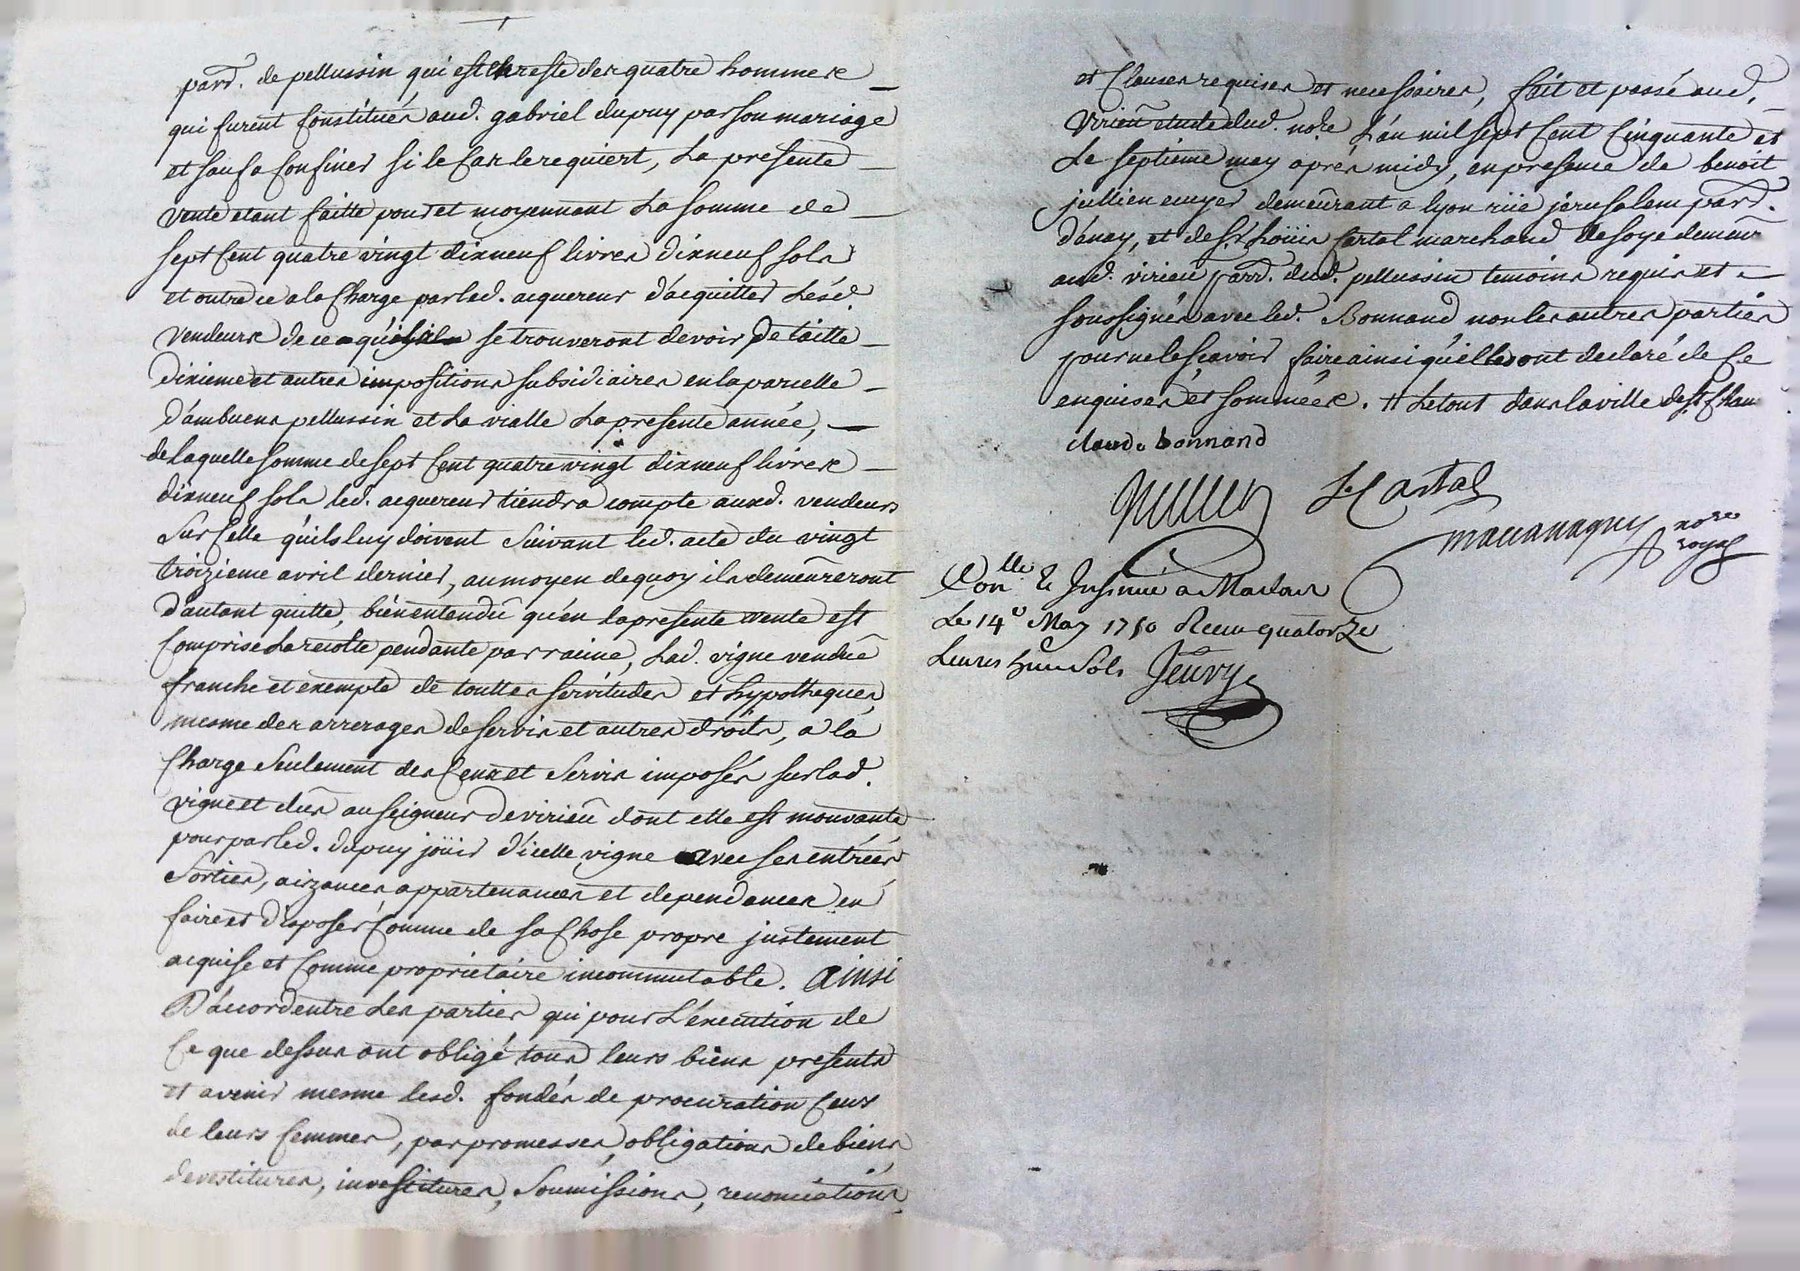 parr. de pellussin qui est le reste des quatre hommes
qui furent Constitués aud. gabriel dupuy par son mariage
et sauf a Confiner si le Cas le requiert, La presente
vente etant faitte pour et moyennant La somme de
sept Cent quatre vingt dixneuf livres dixneuf sols
et outre ce a la Charge par led. acquereur d'acquitter Lesd.
vendeurs de ce qu'ils se trouveront devoir De taille
dixieme et autres impositions subsidiaires en la parcelle
d'ambuens pellussin et La vialle La presente année,
de laquelle somme de sept Cent quatre vingt dixneuf livres
dixneuf sols led. acquereur tiendra compte auxd. vendeurs
Sur Celle qu'ils luy doivent Suivant led. acte du vingt
troizieme avril dernier, au moyen de quoy ils demeureront
d'autant quitte, bien entendû qu'en la presente vente est
Comprise La recolte pendante par racine, Lad. vigne venduë
franche et exempte de touttes servitudes et hypotheques,
mesme des arrerages de servis et autres droits, a la
Charge Seulement des Cens et Servis imposés sur lad.
vigne et dûs au seigneur de virieû dont elle est mouvante
pour par led. dupuy joüir d'icelle vigne avec ses entrées
Sorties, aizances appartenances et dependances en
faire et disposer Comme de sa Chose propre justement
acquise et Comme proprietaire incommutable. Ainsi
D'accord entre Les parties qui pour L'execution de
Ce que dessus ont obligé tous leurs biens presents
et avenir mesme lesd. fondés de procuration Ceux
de leurs femmes, par promesses, obligations de biens
devestitures, investitures, Soumissions, renonciations,
et Clauses requises et necessaires, fait et passé aud.
Virieû etude dud. nore. L'an mil sept Cent Cinquante et
Le septieme may après midy, en presence de benoit
jullien demeurant a lyon rüe jerusalem parr.
d'enay, et de sr. Loüis Cartal marchand de soye demeur
aud. virieu parr. dud. pellussin temoins requis et
soussignés avec led. Bonnand non les autres parties
pour ne le sçavoir faire ainsi qu'elles ont declaré de Ce
enquises et sommées. # Le tout dans la ville de st Cham
claude bonnand
Jullien L Cartal
nore
royal
Conlle. & Insinué a Maclas
Le 14e May 1750 Receu quatorze
Livres huit Sols Jeuvy